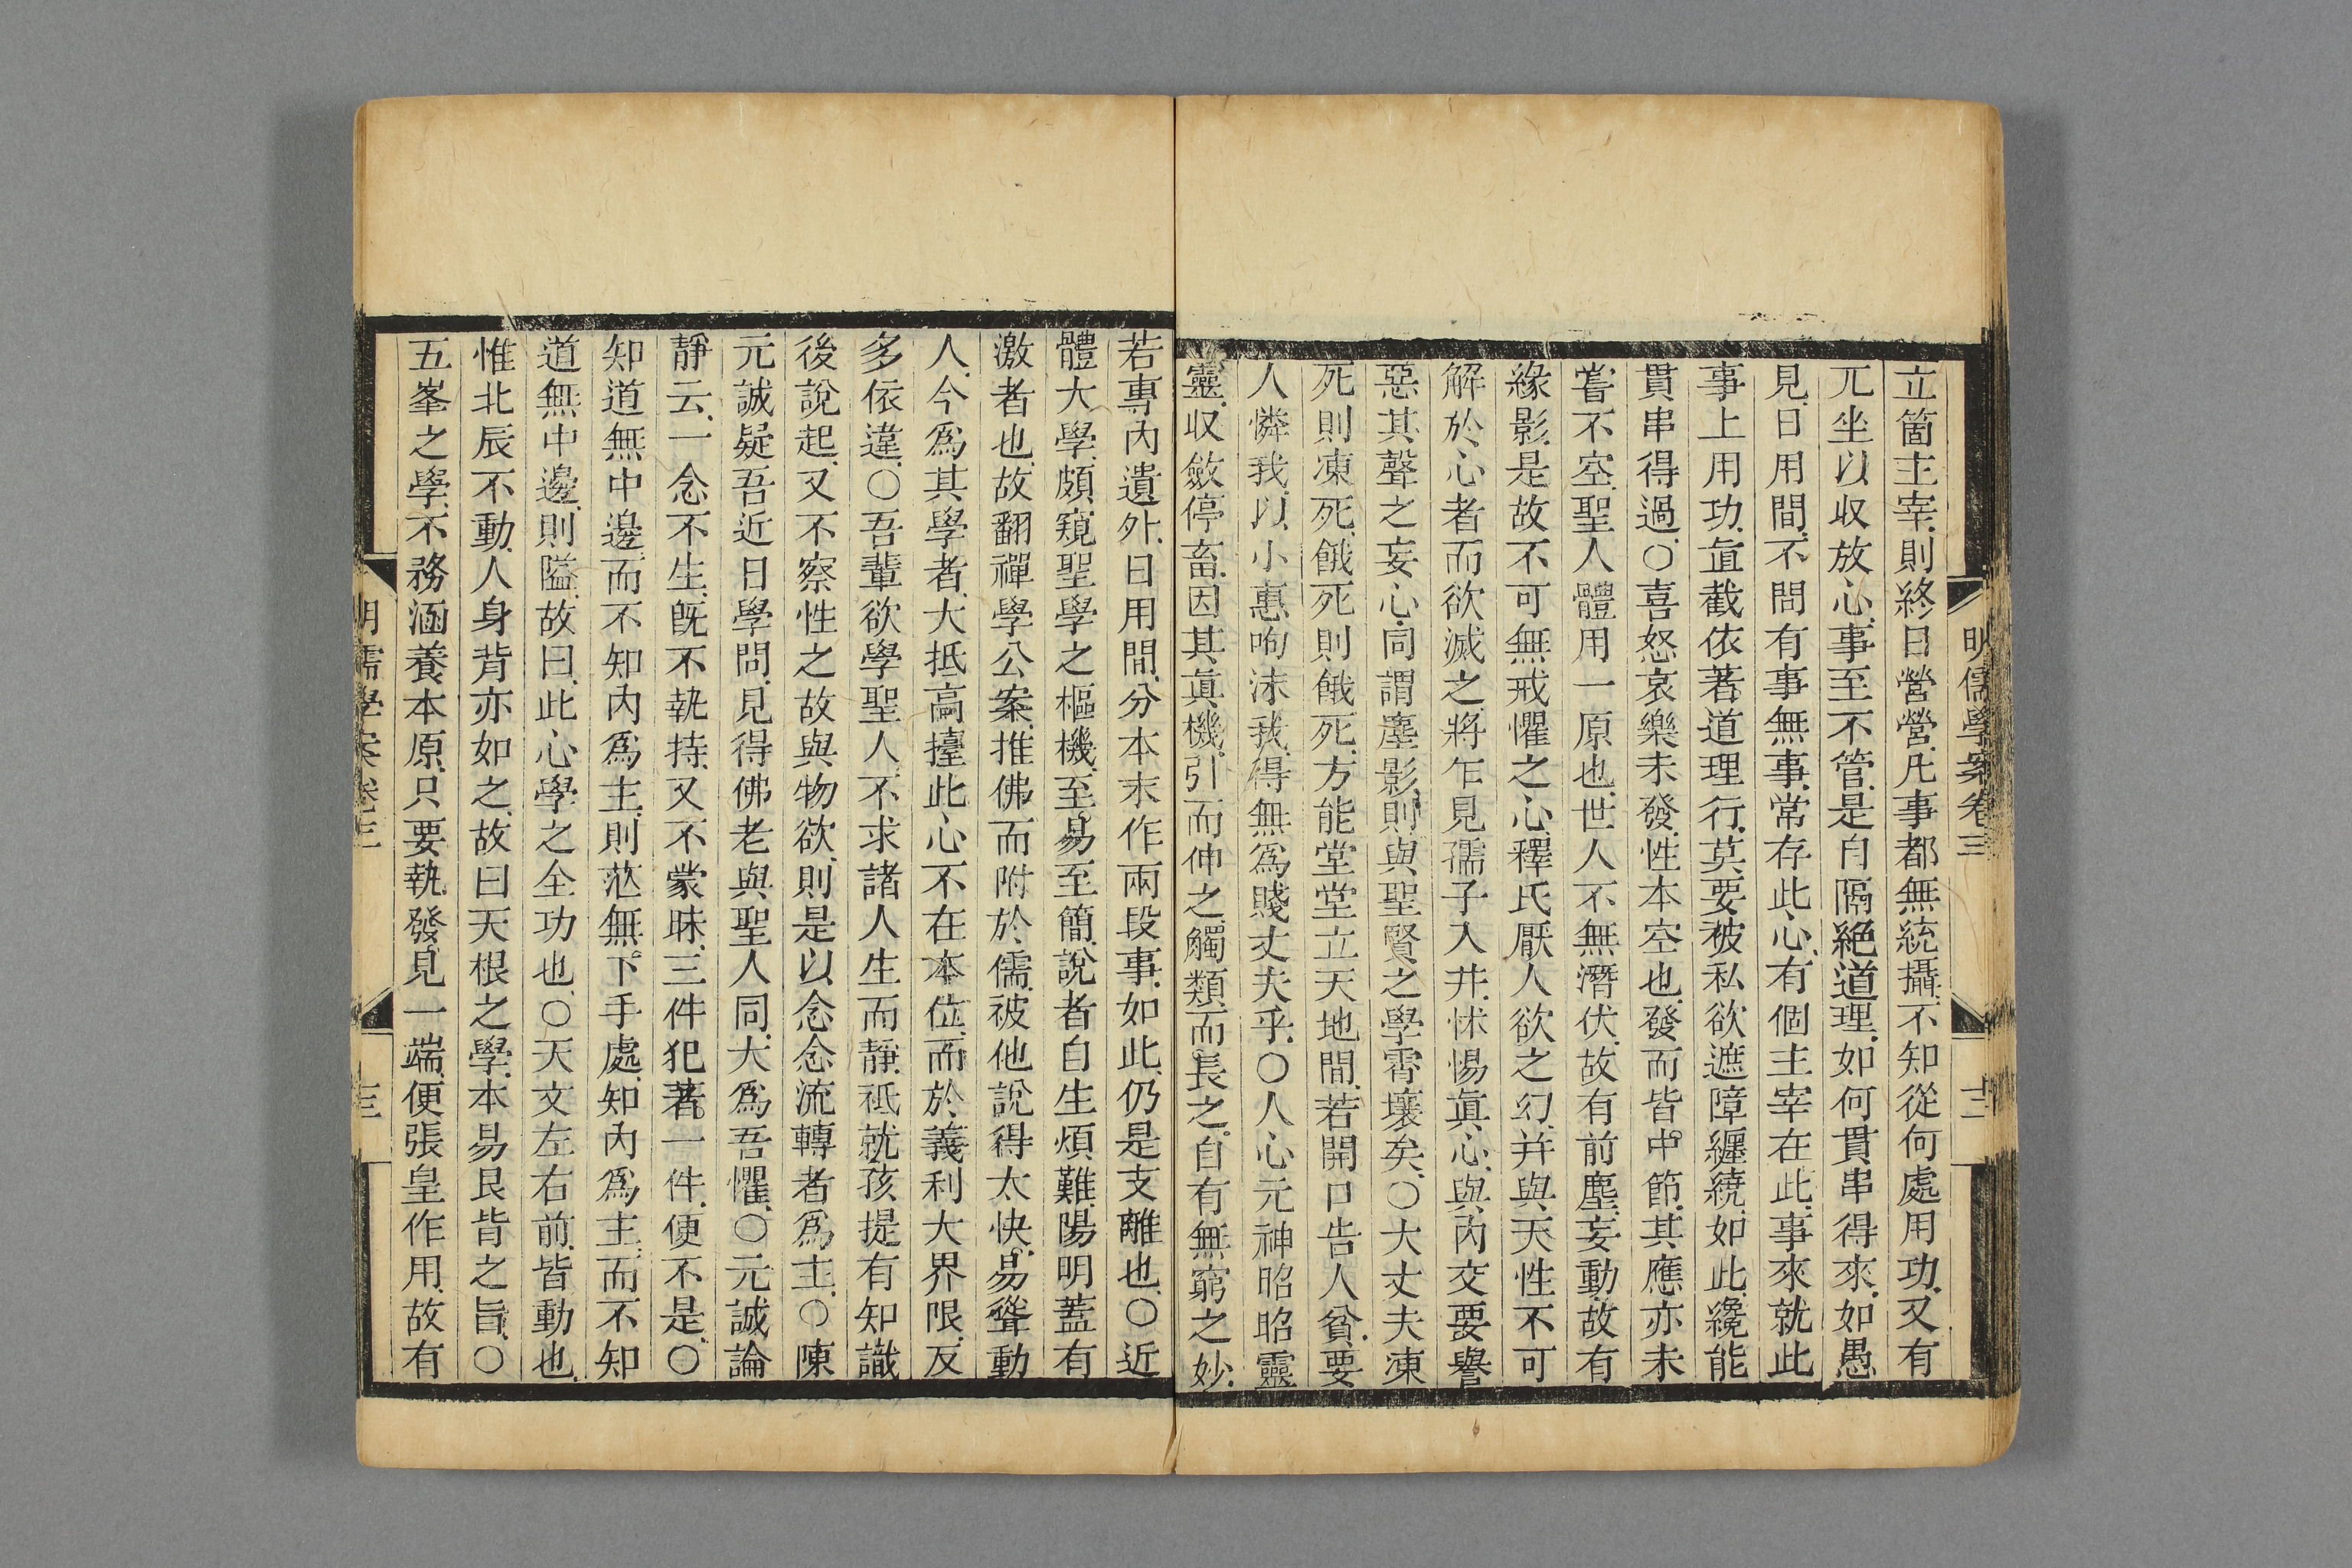 明儒學案卷三
十二
立箇主宰、則終日營營、凡事都無統攝、不知從何處用功、又有
兀坐以收放心、事至不管、是自隔絕道理、如何貫串得來、如愚
見、日用間、不問有事無事、常存此心、有個主宰在此、事來就此
事上用功、直截依著道理行、莫要被私欲遮障纏繞、如此、纔能
貫串得過、○喜怒哀樂未發、性本空也、發而皆中節、其應亦未
嘗不空、聖人體用一原也、世人不無潛伏、故有前塵、妄動、故有
緣影、是故不可無戒懼之心、釋氏厭人欲之幻、并與天性不可
解於心者而欲滅之、將乍見孺子入井、怵惕眞心、與內交要譽
惡其聲之妄心、同謂塵影、則與聖賢之學霄壤矣、○大丈夫凍
死則凍死、餓死則餓死、方能堂堂立天地間、若開口告人貧、要
人憐我、以小惠呴沫我、得無爲賤丈夫乎、○人心元神昭昭靈
靈、収斂停畜、因其眞機、引而伸之、觸類而長之、自有無窮之妙、
若專內遺外、日用間、分本末作兩段事、如此、仍是支離也、○近
體大學、頗窺聖學之樞機、至易至簡、說者自生煩難、陽明蓋有
激者也、故翻禪學公案、推佛而附於儒、被他說得太快、易聳動
人、今爲其學者、大抵高擡此心、不在本位、而於義利大界限、反
多依違、○吾輩欲學聖人、不求諸人生而靜、祗就孩提有知識
後說起、又不察性之故與物欲、則是以念念流轉者爲主、○陳
元誠疑吾近日學問、見得佛老與聖人同、大爲吾懼、○元誠論
靜云、一念不生、既不執持、又不蒙昧、三件犯著一件、便不是、○
知道無中邊、而不知內爲主、則茫無下手處、知內爲主、而不知
道無中邊、則隘、故曰、此心學之全功也、○天文左右前、皆動也、
惟北辰不動、人身背亦如之、故曰天根之學、本易艮背之旨、○
五峯之學、不務涵養本原、只要執發見一端、便張皇作用、故有
明儒學案卷三
十三